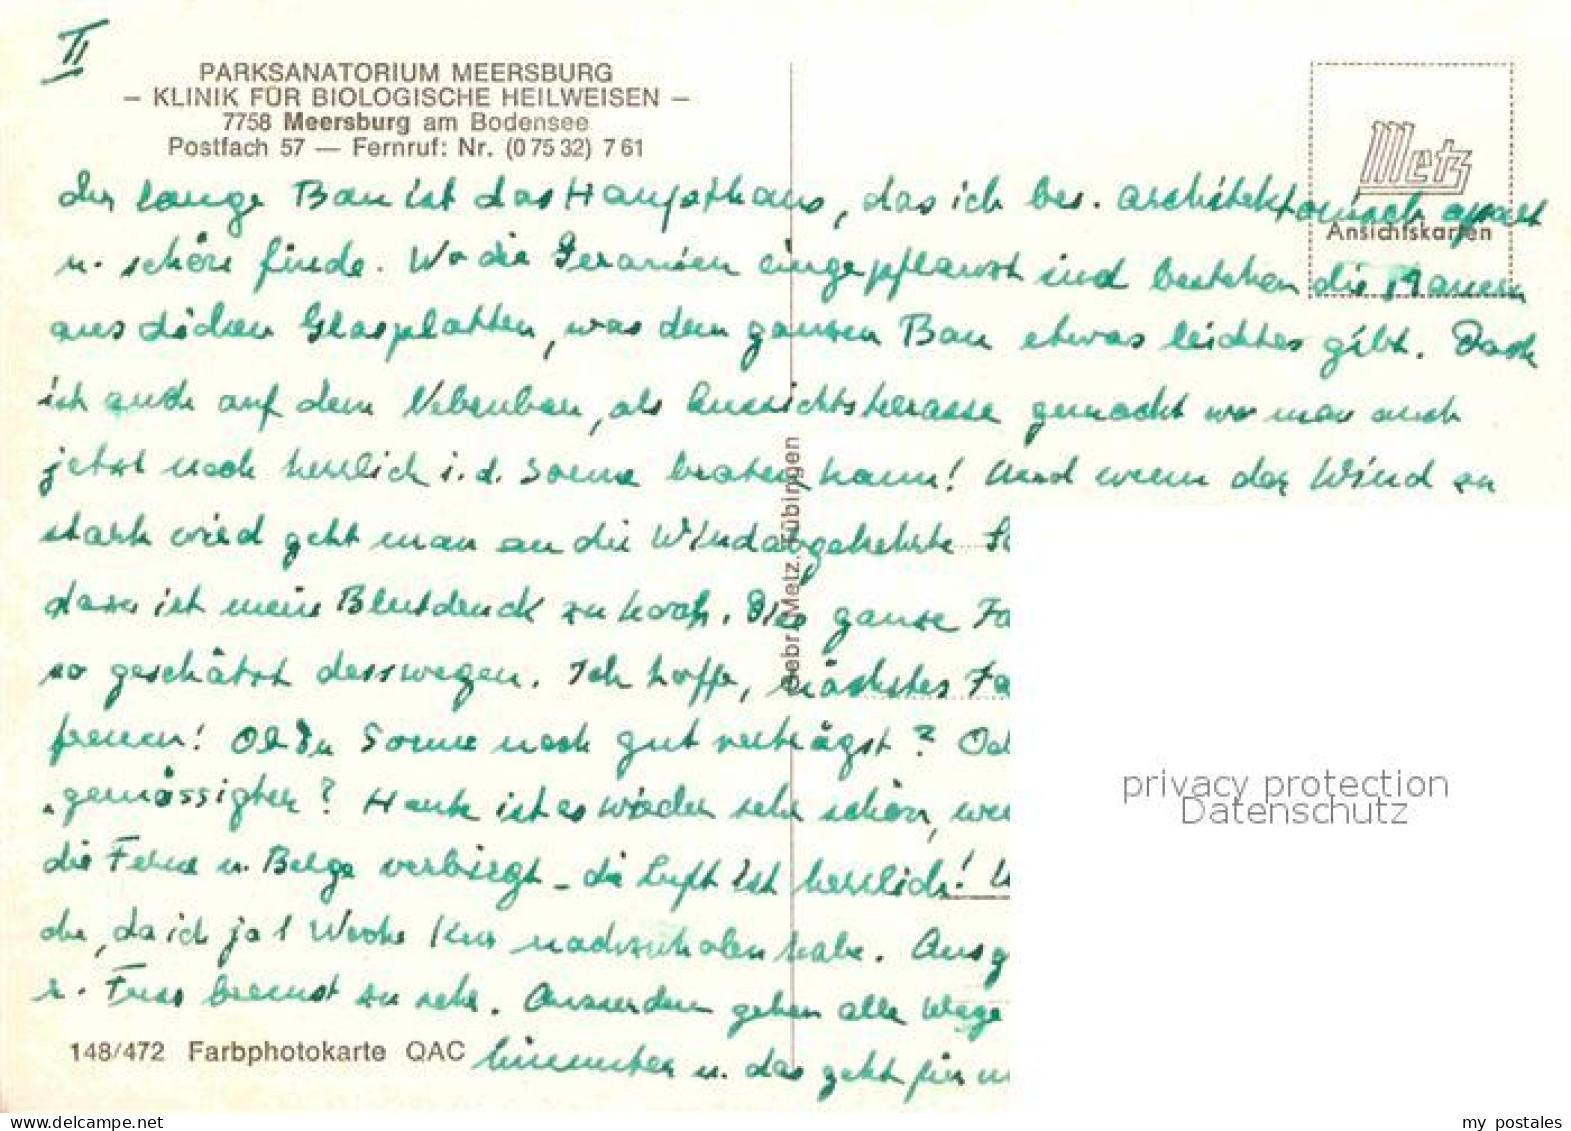 II
PARKSANATORIUM MEERSBURG
– KLINIK FÜR BIOLOGISCHE HEILWEISEN –
7758 Meersburg am Bodensee
Postfach 57 — Fernruf: Nr. (0 75 32) 7 61
Metz
Ansichtskarten
der lange Bau ist das Haupthaus, das ich bes. architektonisch apart
u. schön finde. Wo die Geranien eingepflanzt sind bestehen die Mauern
aus dicken Glasplatten, was dem ganzen Bau etwas leichtes gibt. Dach
ist auch auf dem Nebenbau, als Aussichtsterasse gemacht wo man auch
jetzt noch herrlich i. d. Sonne braten kann! Und wenn der Wind zu
stark wird geht man an die Windabgekehrte
dazu ist mein Blutdruck zu hoch. ganze
so geschätzt desswegen. Ich hoffe, nächstes
freuen! Ob Du Sonne noch gut verträgst?
gemässigter? Heute ist es wieder sehr schön,
die Ferne u. Berge verbirgt – die Luft ist herrlich!
da ich ja 1 Woche Kur nachzuholen habe.
r. Fuss bremst zu sehr. Ausserdem gehen alle Wege
hinunter u. das geht für
Gebr. Metz, Tübingen
148/472 Farbphotokarte QAC
privacy protection
Datenschutz
www.delcampe.net
my_postales